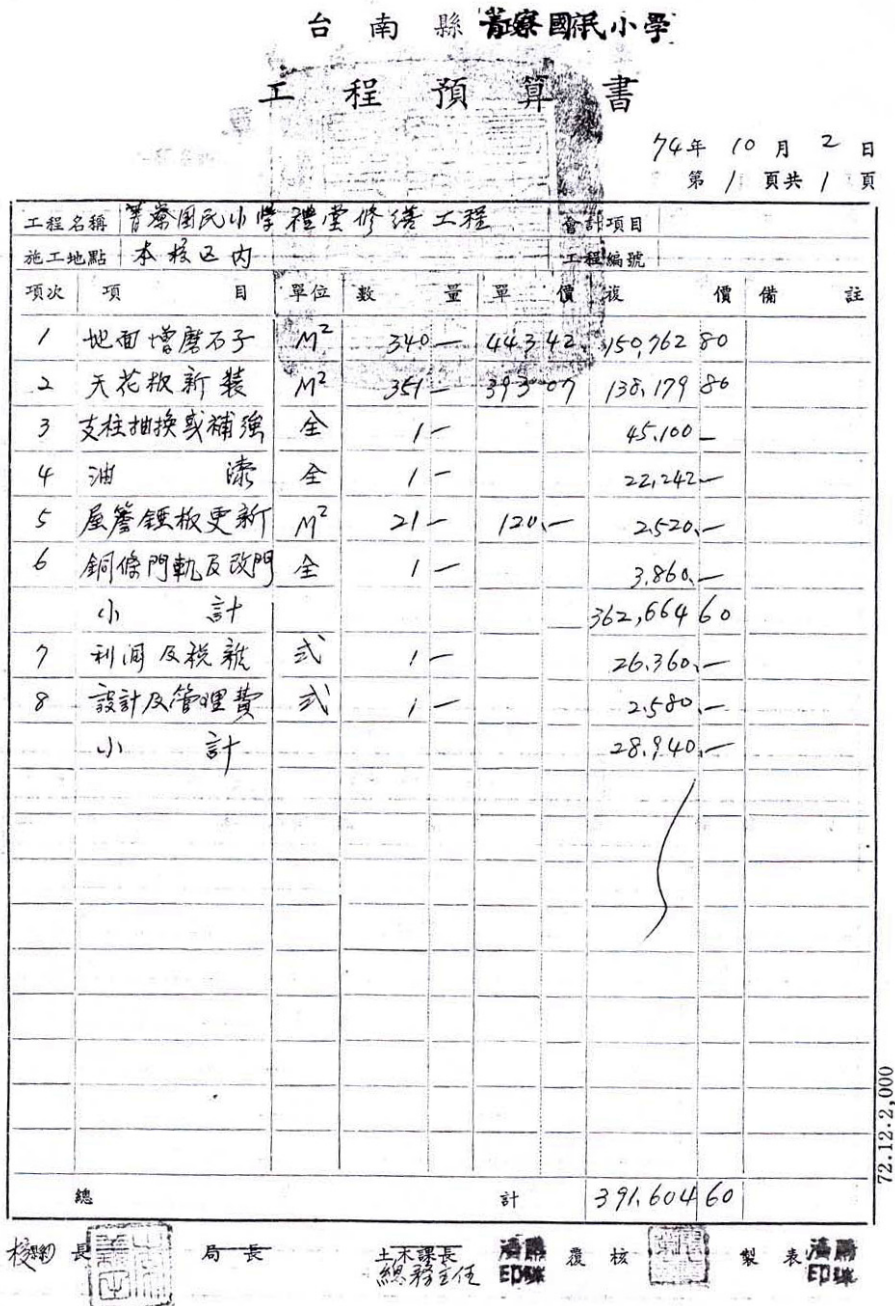 台南縣菁寮國民小學
工程預算書
74年10月2日
第1頁共1頁
工程名稱 菁寮國民小學禮堂修繕工程 會計項目
施工地點 本校區內 工程編號
項次 項目 單位 數量 單價 複價 備註
1 地面增磨石子 M² 340— 443 42 150,762 80
2 天花板新裝 M² 351— 393 07 138,179 80
3 支柱抽換或補強 全 1— 45,100—
4 油漆 全 1— 22,242—
5 屋簷鉄板更新 M² 21— 120.— 2,520.—
6 銅條門軌及改門 全 1— 3,860.—
小計 362,664 60
7 利潤及稅雜 式 1— 26,360.—
8 設計及管理費 式 1— 2,580.—
小計 28,940.—
總計 391,604 60
校長 局長 土木課長 總務主任 覆核 製表
72.12.2,000